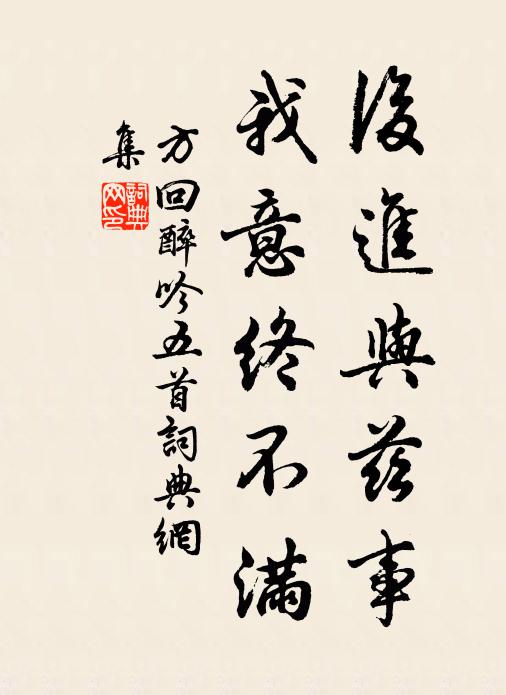 後進與茲事
我意終不滿
方回醉吟五首詞典網
集
詞典网印